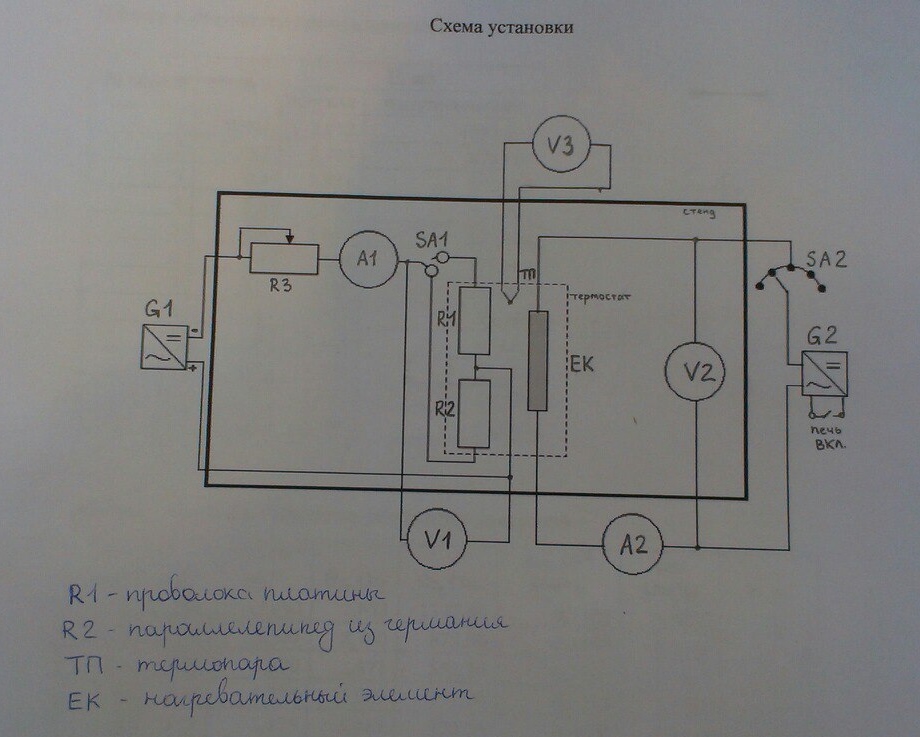 Схема установки
V3
стенд
SA1
A1
R3
ТП
SA2
G1
термостат
R1
G2
EK
V2
R2
печь
ВКЛ.
V1
A2
R1 - проволока платины
R2 - параллелепипед из германия
ТП - термопара
ЕК - нагревательный элемент